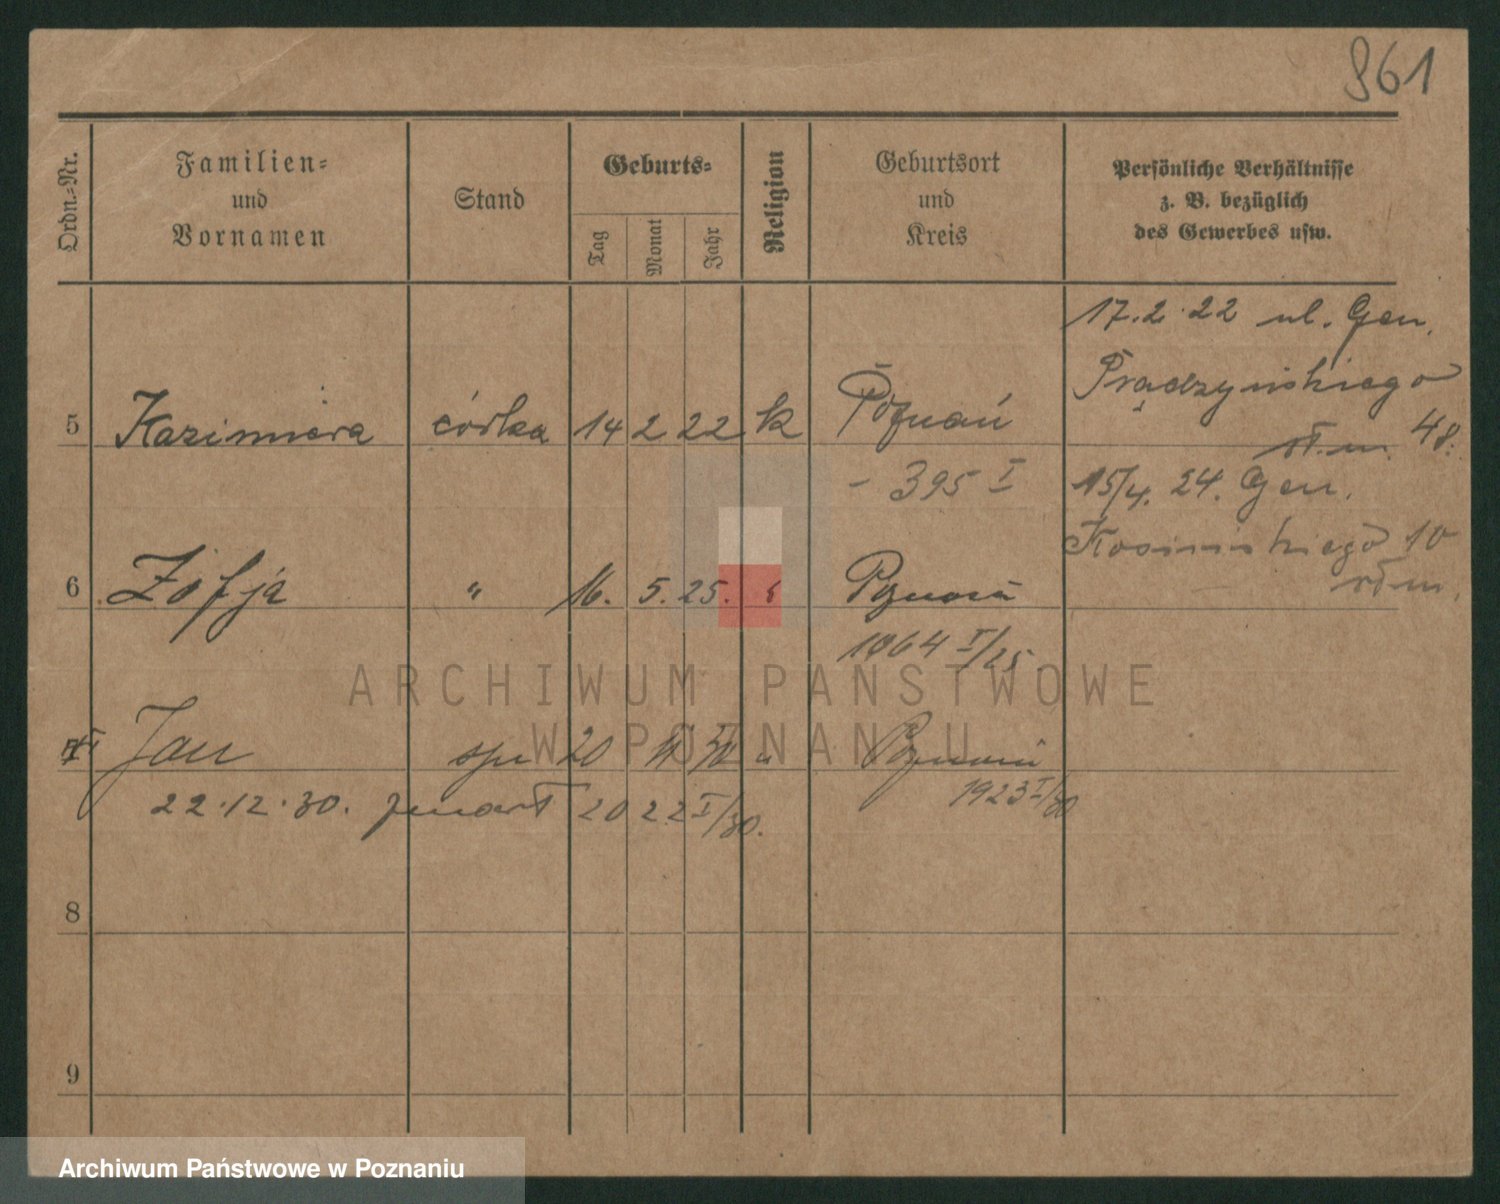 961
Ordn.-Nr.
Familien-
und
Vornamen
Stand
Geburts-
Tag
Monat
Jahr
Religion
Geburtsort
und
Kreis
Persönliche Verhältnisse
z. B. bezüglich
des Gewerbes usw.
17.2.22 ul. Gen.
Prądzyńskiego
48.
5 Kazimiera córka 14 2 22 k Poznań
- 395 I
15/4. 24. Gen.
Kosińskiego 10
6 Zofja " 16. 5. 25. Poznań
1064 I/25
Jan syn 20 Poznań
1923 I/30
22.12.30. 20 22 I/30.
8
9
ARCHIWUM PAŃSTWOWE
W POZNANIU
Archiwum Państwowe w Poznaniu